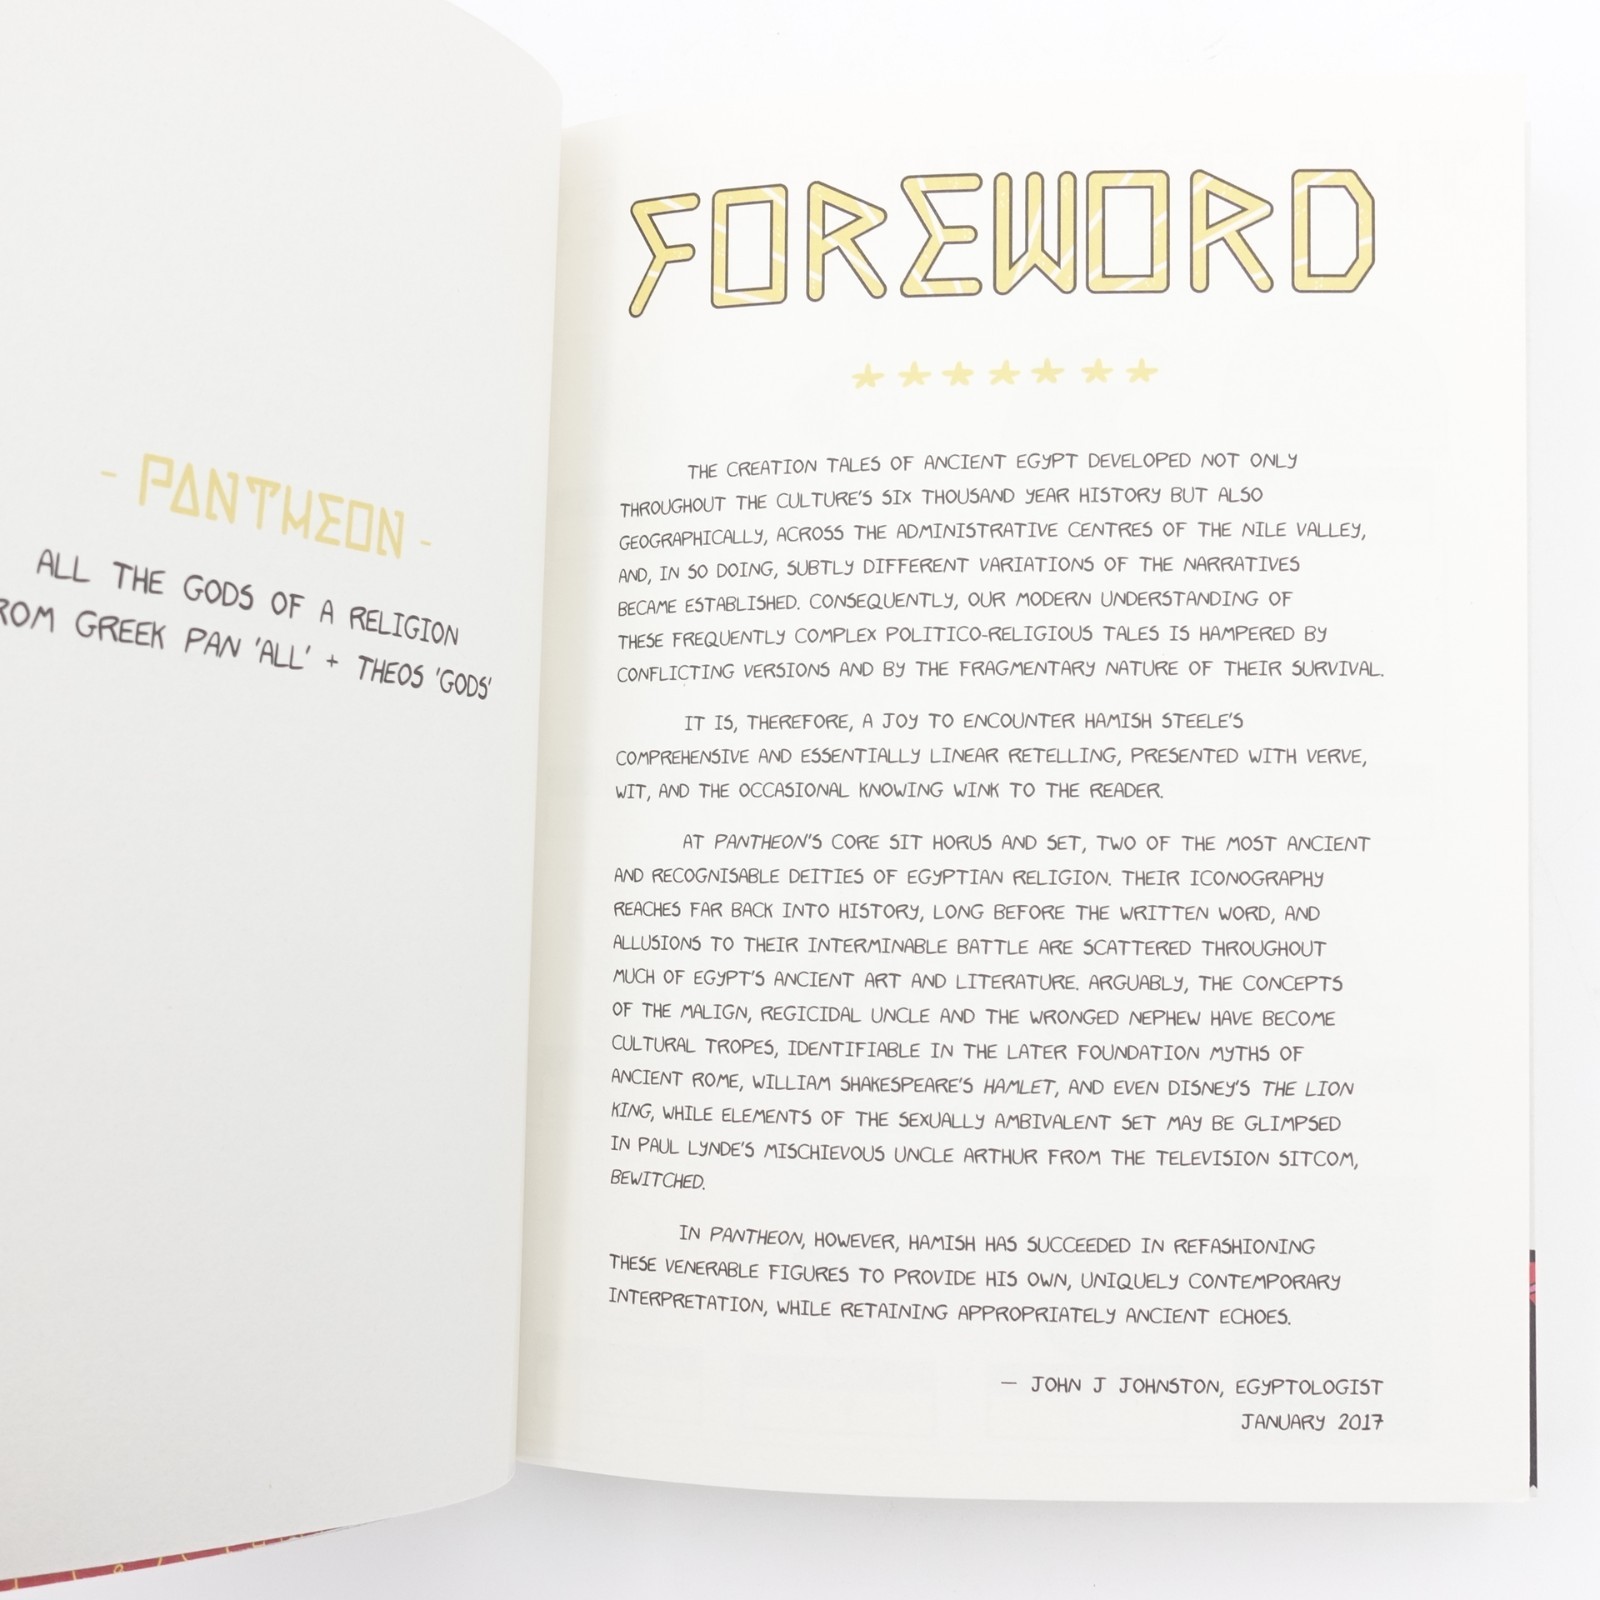 - PANTHEON -
ALL THE GODS OF A RELIGION
GREEK PAN 'ALL' + THEOS 'GODS'
FOREWORD
THE CREATION TALES OF ANCIENT EGYPT DEVELOPED NOT ONLY
THROUGHOUT THE CULTURE'S SIX THOUSAND YEAR HISTORY BUT ALSO
GEOGRAPHICALLY, ACROSS THE ADMINISTRATIVE CENTRES OF THE NILE VALLEY,
AND, IN SO DOING, SUBTLY DIFFERENT VARIATIONS OF THE NARRATIVES
BECAME ESTABLISHED. CONSEQUENTLY, OUR MODERN UNDERSTANDING OF
THESE FREQUENTLY COMPLEX POLITICO-RELIGIOUS TALES IS HAMPERED BY
CONFLICTING VERSIONS AND BY THE FRAGMENTARY NATURE OF THEIR SURVIVAL.
IT IS, THEREFORE, A JOY TO ENCOUNTER HAMISH STEELE'S
COMPREHENSIVE AND ESSENTIALLY LINEAR RETELLING, PRESENTED WITH VERVE,
WIT, AND THE OCCASIONAL KNOWING WINK TO THE READER.
AT PANTHEON'S CORE SIT HORUS AND SET, TWO OF THE MOST ANCIENT
AND RECOGNISABLE DEITIES OF EGYPTIAN RELIGION. THEIR ICONOGRAPHY
REACHES FAR BACK INTO HISTORY, LONG BEFORE THE WRITTEN WORD, AND
ALLUSIONS TO THEIR INTERMINABLE BATTLE ARE SCATTERED THROUGHOUT
MUCH OF EGYPT'S ANCIENT ART AND LITERATURE. ARGUABLY, THE CONCEPTS
OF THE MALIGN, REGICIDAL UNCLE AND THE WRONGED NEPHEW HAVE BECOME
CULTURAL TROPES, IDENTIFIABLE IN THE LATER FOUNDATION MYTHS OF
ANCIENT ROME, WILLIAM SHAKESPEARE'S HAMLET, AND EVEN DISNEY'S THE LION
KING, WHILE ELEMENTS OF THE SEXUALLY AMBIVALENT SET MAY BE GLIMPSED
IN PAUL LYNDE'S MISCHIEVOUS UNCLE ARTHUR FROM THE TELEVISION SITCOM,
BEWITCHED.
IN PANTHEON, HOWEVER, HAMISH HAS SUCCEEDED IN REFASHIONING
THESE VENERABLE FIGURES TO PROVIDE HIS OWN, UNIQUELY CONTEMPORARY
INTERPRETATION, WHILE RETAINING APPROPRIATELY ANCIENT ECHOES.
— JOHN J JOHNSTON, EGYPTOLOGIST
JANUARY 2017